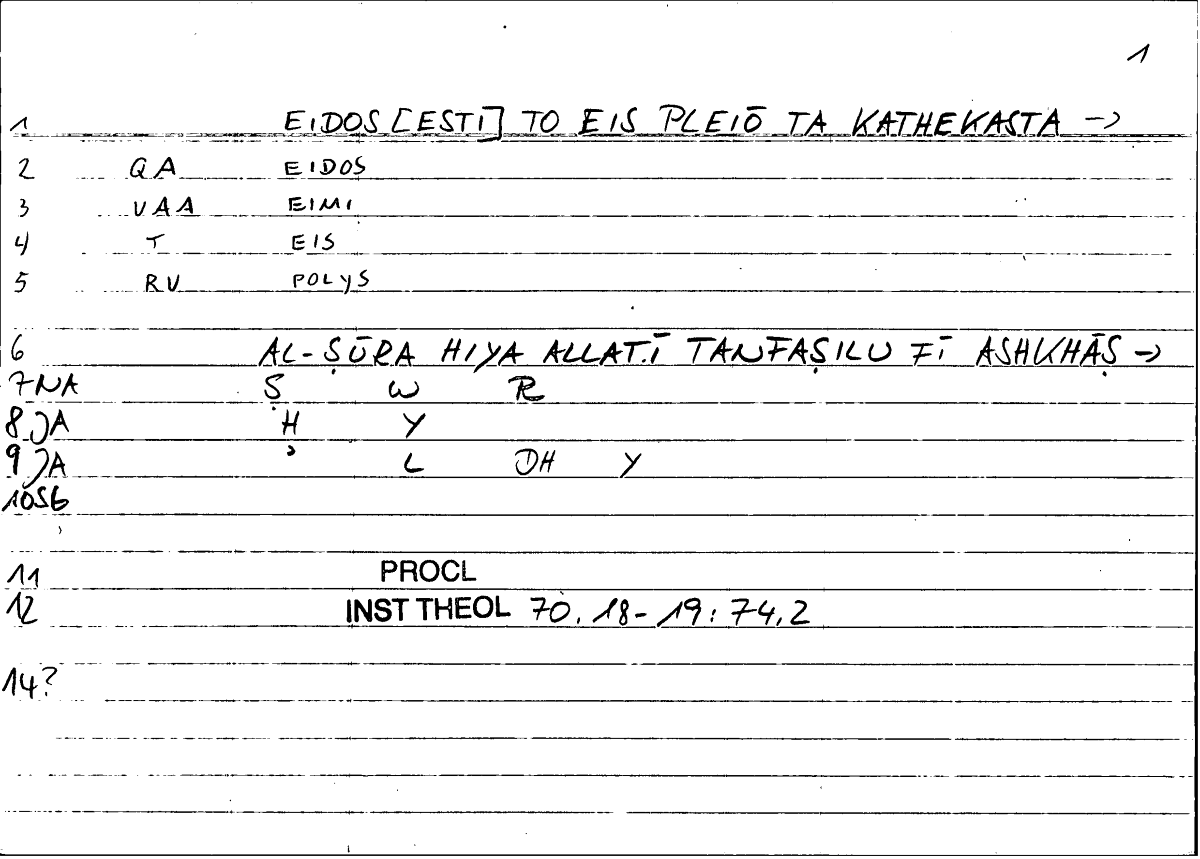 1
1 EIDOS [ESTI] TO EIS PLEIŌ TA KATHEKASTA ->
2 QA EIDOS
3 VAA EIMI
4 T EIS
5 RV POLYS
6 AL-ṢŪRA HIYA ALLAT.Ī TANFAṢILU FĪ ASHKHĀṢ ->
7 NA Ṣ W R
8 JA H Y
9 JA ʾ L DH Y
10 SG
11 PROCL
12 INST THEOL 70.18-19: 74,2
14?